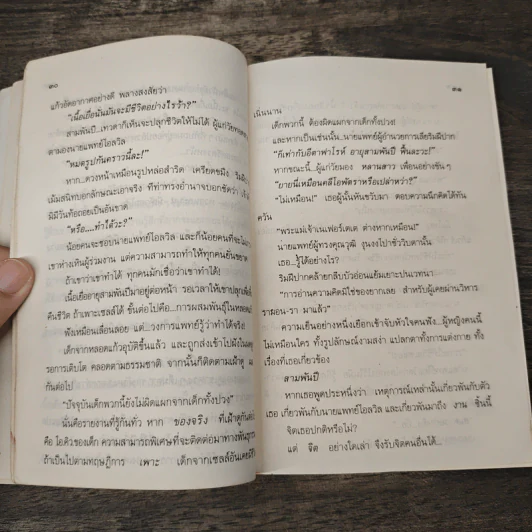 ๓๐
แก้วอัดอากาศอย่างดี พลางสงสัยว่า
"เนื้อเยื่อนั่นมันจะมีชีวิตอย่างไรร้า?"
สามพันปี...เทวดาก็เห็นจะปลุกชีวิตให้ไม่ได้ ผู้แก่วัย
ตามองนายแพทย์ไอลวิล
"หมดรูปกันคราวนี้ละ!"
หาก...ดวงหน้าเหมือนรูปหล่อสำริด เคร่งเครียด
เม้มสนิทบอกลักษณะเอาจริง ที่ท่าทรงอำนาจบอกชัดว่า
มิมีวันท้อถอยเป็นอันขาด
"หรือ...ทำได้วะ?"
น้อยคนจะชอบนายแพทย์ไอลวิล และก็น้อยคนที่จะ
เขาห่างเหินผู้ร่วมงาน แต่ความสามารถทำให้ทุกคนยั่นขยาด
ถ้าเขาว่าเขาทำได้ ทุกคนมักเชื่อว่าเขาทำได้!
เนื้อเยื่ออายุสามพันปีมาอยู่ต่อหน้า รอเวลาให้เขาปลุก
คืนชีวิต ถ้าเพาะเซลล์ได้ ขั้นต่อไปคือ...การผสมพันธุ์ในหลอด
ฟังเหมือนเลื่อนลอย แต่...วงการแพทย์รู้ว่าทำได้จริง
เด็กจากหลอดแก้วอุบัติขึ้นแล้ว และถูกส่งเข้าไปฝังใน
รอการเติบโต คลอดตามธรรมชาติ จากนั้นก็ติดตามเฝ้าดู
กันต่อไป
"ปัจจุบันเด็กพวกนี้ยังไม่ผิดแผกจากเด็กทั้งปวง"
นั่นคือรายงานที่รู้กันทั่ว หาก ของจริง ที่เฝ้าดูกัน
คือ ไอคิวของเด็ก ความสามารถพิเศษที่จะติดต่อมาทาง
ถ้าเป็นไปตามทฤษฎีการ เพาะ เด็กจากเซลล์อันเคย
๓๑
เนิ่นนาน
เด็กพวกนี้ ต้องผิดแผกจากเด็กทั้งปวง!
และหากเป็นเช่นนั้น...นายแพทย์ผู้อำนวยการเลียริมฝีปาก
"ก็เท่ากับอีตาฟาโรห์ อายุสามพันปี ฟื้นละวะ!"
หากขณะนี้...ผู้แก่วัยมอง หลานสาว เพื่อนอย่างขัน ๆ
"ยายนี่เหมือนคลีโอพัตราหรือเปล่าหว่า?"
"ไม่เหมือน!" เธอผู้นั้นหันขวับมา ตอบความนึกคิดได้ทัน
ควัน
"พระแม่เจ้าเนเฟอร์เตเต ต่างหากเหมือน!"
นายแพทย์ผู้ทรงคุณวุฒิ งุนงงไปชั่ววิบตานั้น
เธอ...รู้ได้อย่างไร?
ริมฝีปากคล้ายกลีบบัวอ่อนแย้มเยาะปนเวทนา
"การอ่านความคิดมิใช่ของยากเลย สำหรับผู้เคยผ่านวิหาร
รามอน-รา มาแล้ว"
ความเย็นอย่างหนึ่งเยือกเข้าจับหัวใจคนฟัง...ผู้หญิงคนนี้
ไม่เหมือนใคร ทั้งรูปลักษณ์งามสง่า แปลกตาทั้งการแต่งกาย ทั้ง
เรื่องที่เธอเกี่ยวข้อง
สามพันปี
หากเธอพูดประหนึ่งว่า เหตุการณ์เหล่านั้นเกี่ยวพันกับตัว
เธอ เกี่ยวพันกับนายแพทย์ไอลวิล และเกี่ยวพันมาถึง งาน ชิ้นนี้
จิตเธอปกติหรือไม่?
แต่ จิต อย่างใดเล่า จึงรับจิตคนอื่นได้...